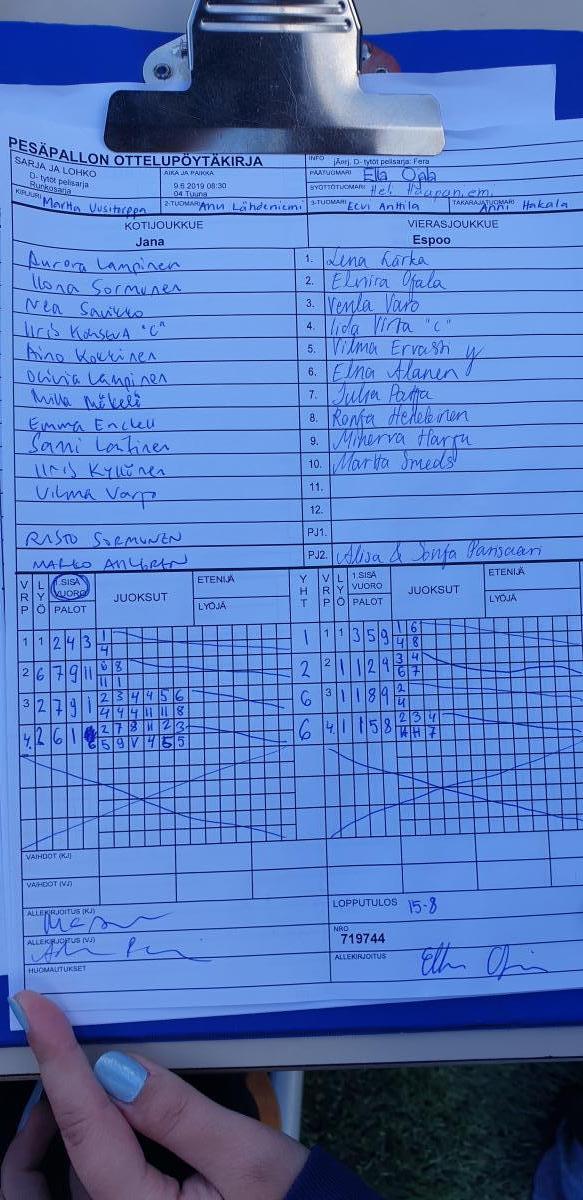 PESÄPALLON OTTELUPÖYTÄKIRJA
SARJA JA LOHKO
D- tytöt pelisarja
Runkosarja
AIKA JA PAIKKA
9.6.2019 08:30
04 Tuuna
INFO jÄerj. D- tytöt pelisarja: Fera
PÄÄTUOMARI Ella Ojala
SYÖTTÖTUOMARI
KIRJURI Martta Uusitorppa
2-TUOMARI Anu Lähdeniemi
3-TUOMARI Eevi Anttila
TAKARAJATUOMARI Anni Hakala
KOTIJOUKKUE
Jana
VIERASJOUKKUE
Espoo
Aurora Lampinen 1. Lena Kärkä
Ilona Sormunen 2. Elmira Ojala
Nea Savikko 3. Venla Varo
Iiris "C" 4. Iida Virta "C"
Aino Kokkinen 5. Vilma Ervasti
Olivia Lampinen 6. Elna Alanen
Milla Mäkelä 7. Julia
Emma Enckell 8. Ronja
Sanni Laitinen 9. Minerva Harju
Iiris Kyllönen 10. Martta Smeds
Vilma Varpo 11.
12.
RISTO SORMUNEN PJ1.
MARKO AHLGREN PJ2. Alisa & Sonja Pansaari
VRP LYÖ 1.SISÄ VUORO PALOT JUOKSUT ETENIJÄ LYÖJÄ YHT VRP LYÖ 1.SISÄ VUORO PALOT JUOKSUT ETENIJÄ LYÖJÄ
1 1 2 4 3 1 1 1 1 3 5 9 1 6
4 4 8
2 6 7 9 11 6 8 2 2 1 1 2 9 3 4
11 1 6 7
3 2 7 9 1 2 3 4 4 5 6 6 3 1 1 8 9 2
4 4 4 11 11 8 4
4. 2 6 1 6 2 7 8 11 2 3 6 4. 1 1 5 8 2 3 4
5 9 V 4 5 5
VAIHDOT (KJ)
VAIHDOT (VJ)
ALLEKIRJOITUS (KJ)
LOPPUTULOS 15-8
ALLEKIRJOITUS (VJ)
NRO
719744
HUOMAUTUKSET
ALLEKIRJOITUS